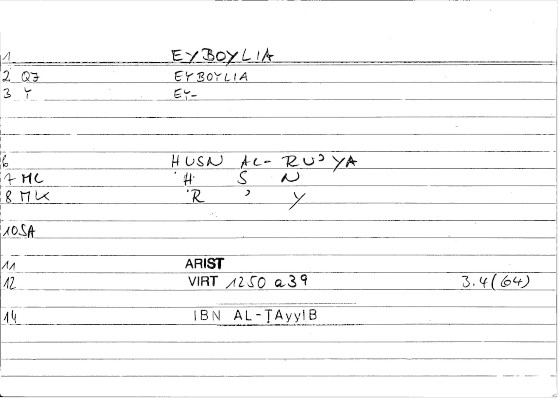 1 EYBOYLIA
2 QJ EYBOYLIA
3 Y EY-
6 HUSN AL-RU'YA
7 ML 'H S N
8 MLK 'R ' Y
10 SA
11 ARIST
12 VIRT 1250 a39 3.4(64)
14 IBN AL-ṬAyyIB